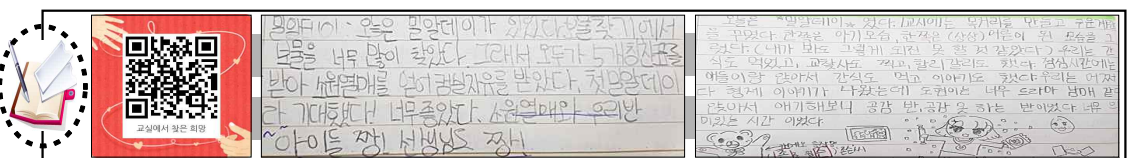 교실에서 찾은 희망
밀알데이. 오늘은 밀알데이가 있었다. 보물찾기에서
보물을 너무 많이 찾았다. 그래서 모두가 5개 칭찬표를
받아 소원열매를 얻어 교실자유를 받았다. 첫 밀알데이
라 기대했다! 너무좋았다. 소원열매와 우리반
아이들 짱! 선생님도 짱!
오늘은 "밀알데이" 였다. 1교시에는 목걸이를 만들고
를 꾸몄다. 한쪽은 아기모습, 한쪽은 (상상) 어른이 된 모습을 그
렸다. (내가 봐도 그렇게 되진 못 할 것 같았다) 우리는 간
식도 먹었고, 교실사도 찍고, 할리갈리도 했다. 점심시간에는
애들이랑 앉아서 간식도 먹고 이야기도 했다. 우리는 어쩌
다 형제 이야기가 나왔는데 도원이는 너무 드라마 남매 같
앉아서 얘기해보니 공감 반, 공감 못 하는 반이었다. 너무 재
미있는 시간 이었다.